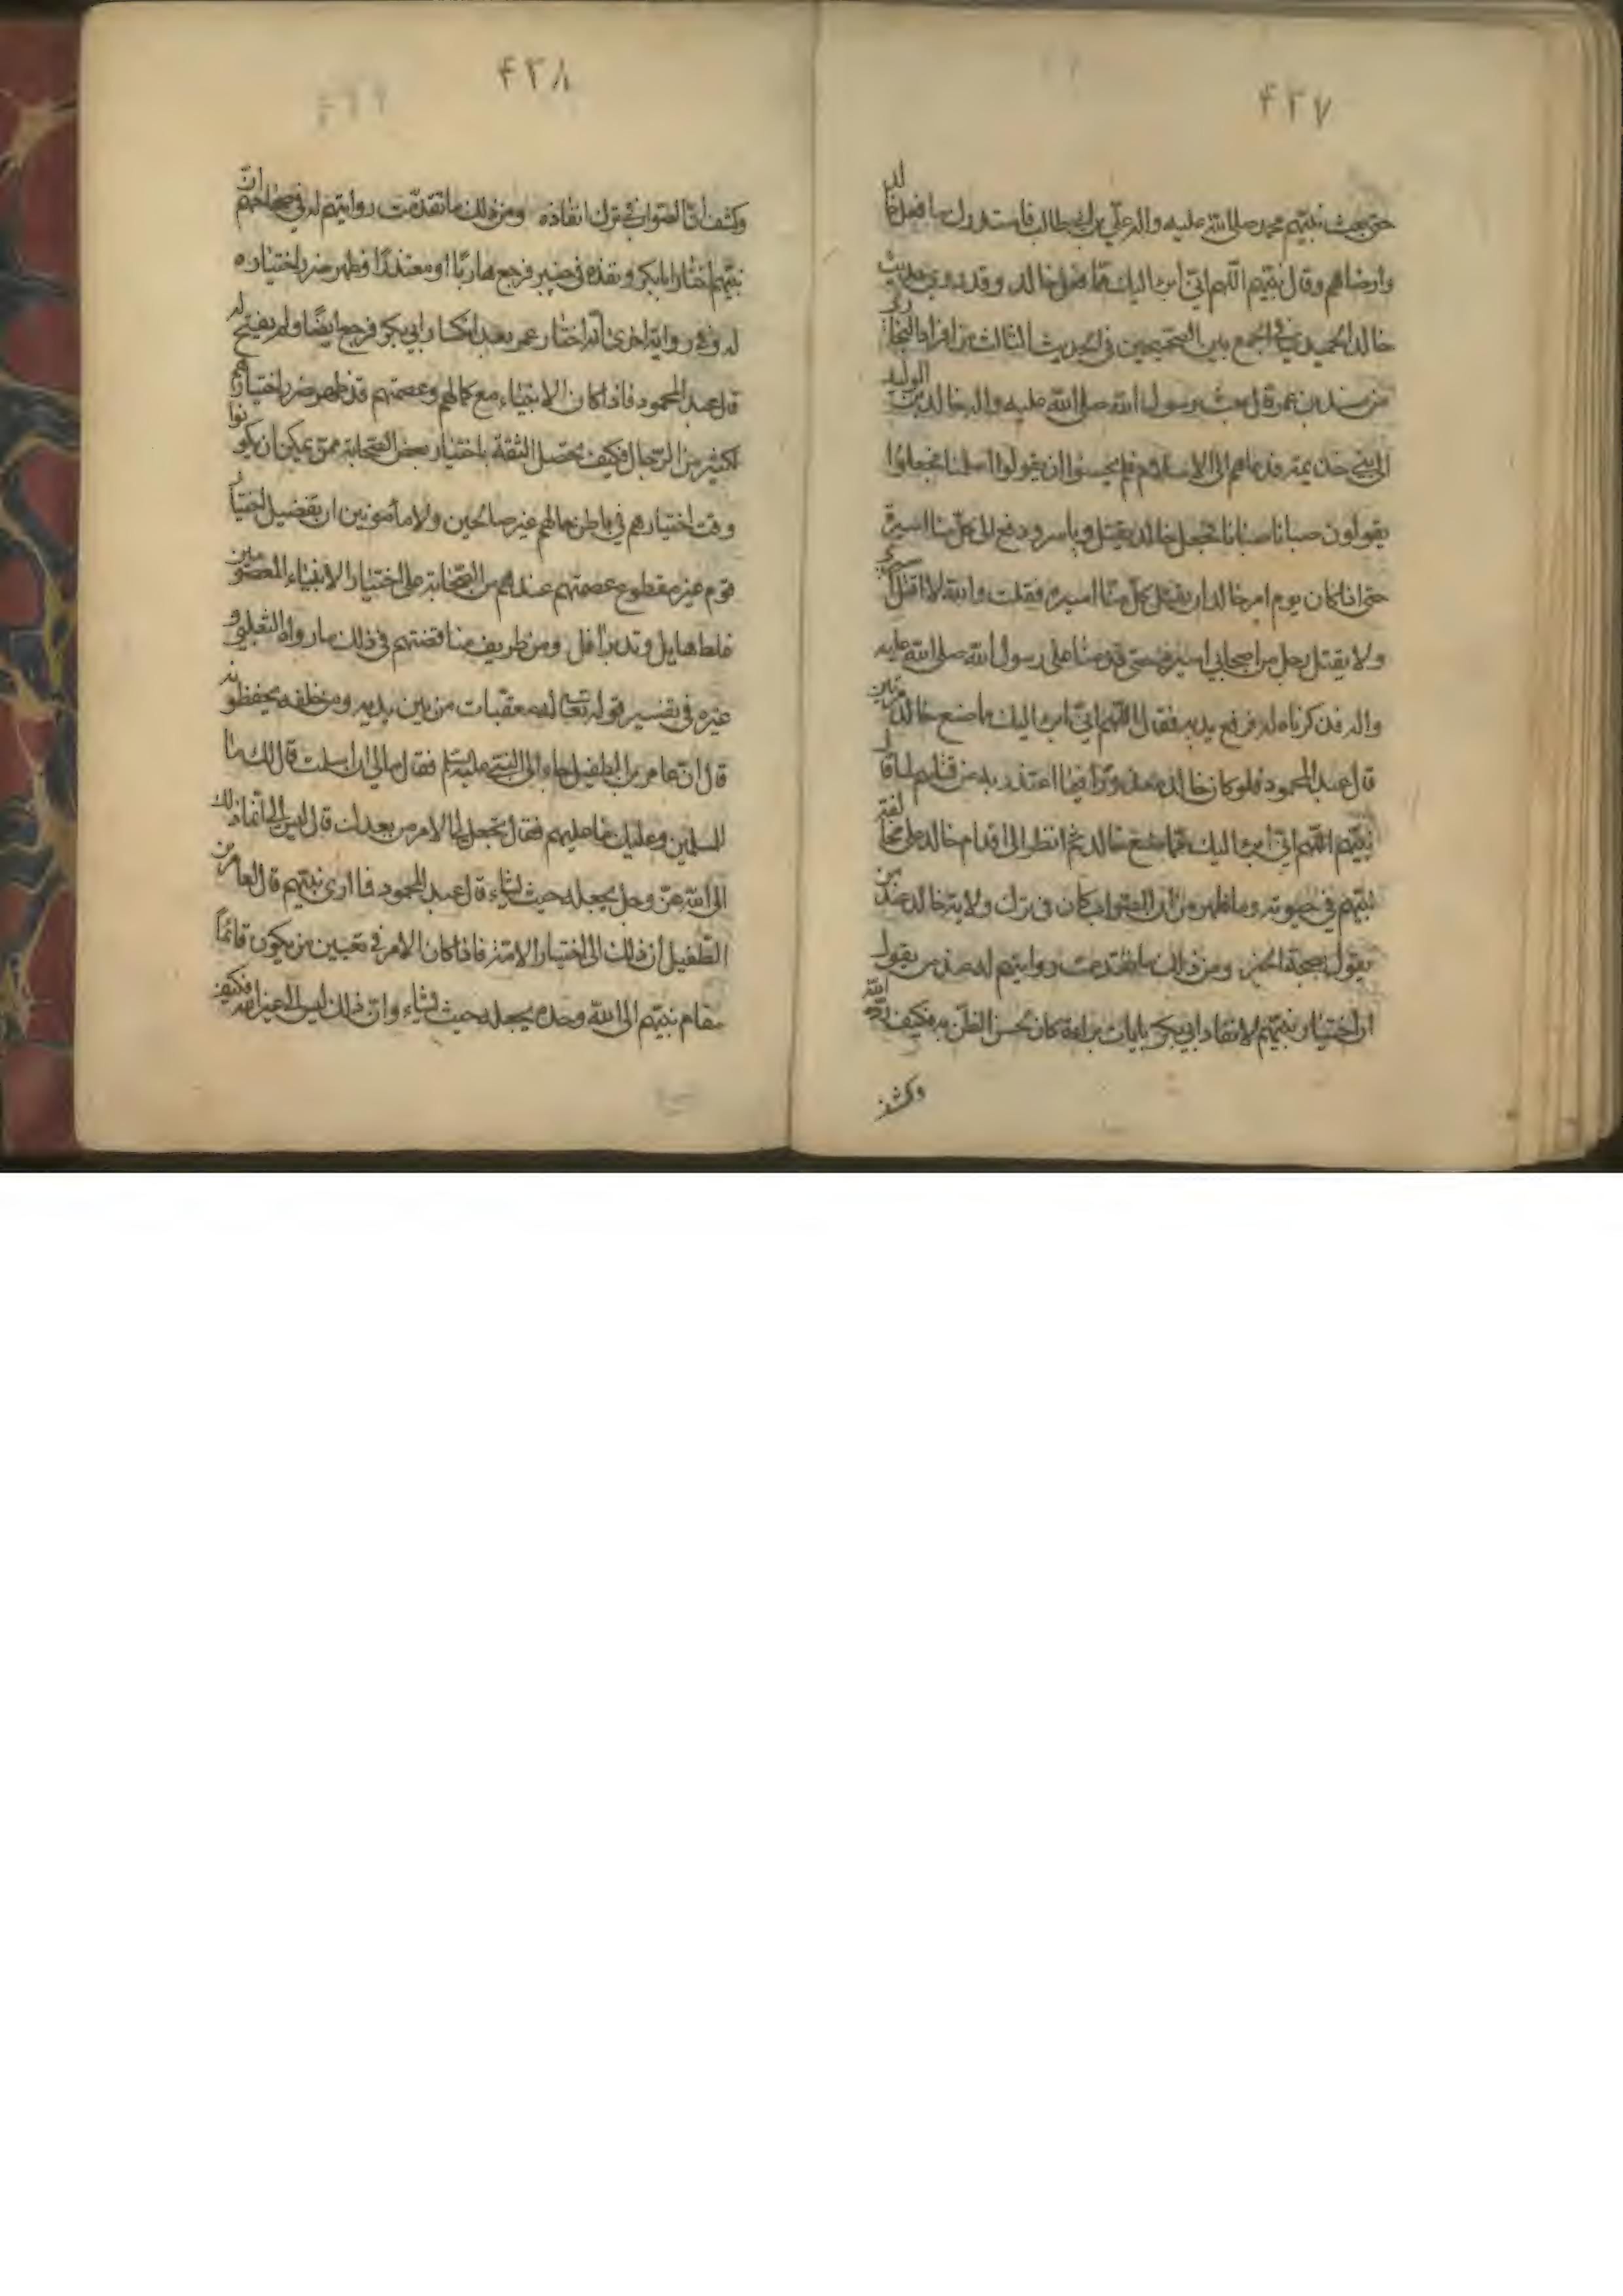 ۴۳۷
حتى بعث نبيهم محمد صلى الله عليه واله علي بن ابيطالب فاستدرك ما فعل خالد
وارضاهم وقال نبيهم اللهم اني ابرء اليك مما فعل خالد وقد روى حديث
خالد الحميدي في الجمع بين الصحيحين في الحديث الثالث من افراد البخاري
من مسند بن عمر قال بعث رسول الله صلى الله عليه واله خالد بن الوليد
الى بني خذيمة فدعاهم الى الاسلام فلم يحسنوا ان يقولوا اسلمنا فجعلوا
يقولون صبانا صبانا فجعل خالد يقتل وياسر ودفع الى كل منا اسيره
حتى اذا كان يوم امر خالد ان يقتل كل منا اسيره فقلت والله لا اقتل اسيري
ولا يقتل رجل من اصحابي اسيره حتى قدمنا على رسول الله صلى الله عليه
واله فذكرناه له فرفع يديه فقال اللهم اني ابرء اليك ما صنع خالد مرتين
قال عبد المحمود فلو كان خالد معذورا ايضا اعتذر به عن قتلهم لما قال
نبيهم اللهم اني ابرء اليك مما صنع خالد ثم انظر الى اقدام خالد على مخالفة
نبيهم في حيوته وما ظهر من ان الصواب كان في ترك ولاية خالد عند من
يقول بصحة الخبر ومن ذلك ما تقدمت روايتهم له عند من يقول
ان اختيار نبيهم لانفاد ابي بكر بايات براءة كان بحسن الظن به فكيف رده الله
وكشف
۴۳۸
وكشف ان الصواب في ترك انفاذه ومن ذلك ما تقدمت روايتهم له في صحاحهم ان
نبيهم اختار ابابكر ونفذه في خيبر فرجع هاربا او معتذرا فظهر ضرر اختياره
له وفي رواية اخرى انه اختار عمر بعد انكسار ابي بكر فرجع ايضا ولم يفتح له
قال عبد المحمود فاذا كان الانبياء مع كمالهم وعصمتهم قد ظهر ضرر اختيارهم
لكثير من الرجال فكيف يحصل الثقة باختيار بعض الصحابة ممن يمكن ان يكونوا
وقت اختيارهم في باطن حالهم غير صالحين ولا مأمونين ان تفضيل اختيار
قوم غير مقطوع عصمتهم عندهم من الصحابة على اختيار الانبياء المعصومين
غلط هايل وتدبر آفل ومن طريف مناقضتهم في ذلك ما رواه الثعلبي و
غيره في تفسير قوله تعالى له معقبات من بين يديه ومن خلفه يحفظونه
قال ان عامر بن الطفيل جاء الى النبي عليه السلم فقال مالي ان اسلمت قال لك ما
للمسلمين وعليك ما عليهم فقال تجعل لي الامر من بعدك قال ليس الي انما ذلك
الى الله عز وجل يجعله حيث يشاء قال عبد المحمود فما ارى نبيهم قال لعامر بن
الطفيل ان ذلك الى اختيار الامة فاذا كان الامر في تعيين من يكون قائما
مقام نبيهم الى الله وحده يجعله حيث يشاء وان ذلك ليس الى غير الله فكيف